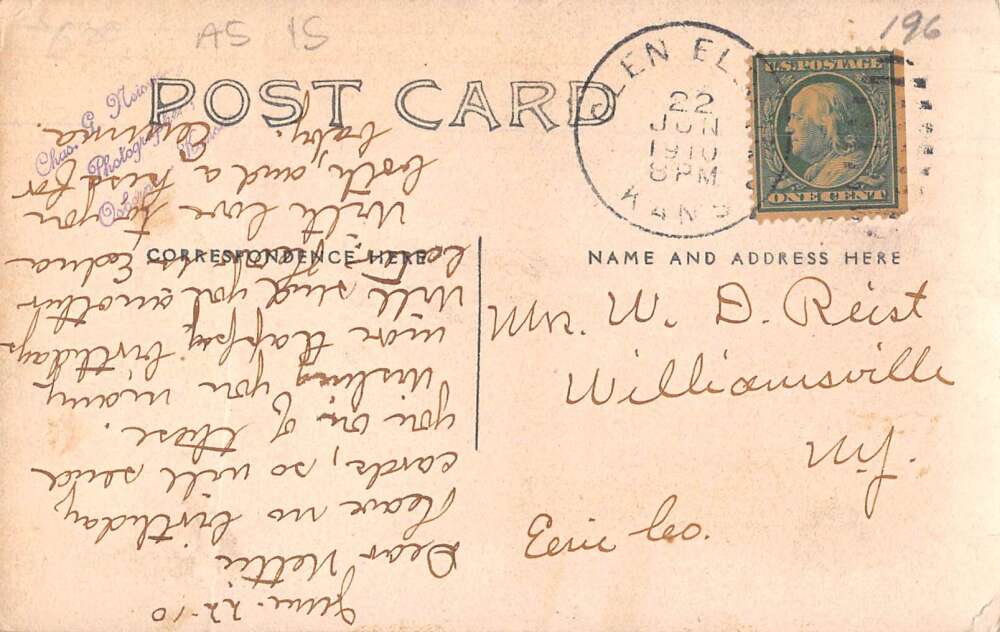 AS IS
196
POST CARD
Chas. G.
Photographer
GLEN EL
22
JUN
1910
8 PM
KANS
U.S. POSTAGE
ONE CENT
CORRESPONDENCE HERE
NAME AND ADDRESS HERE
Mr. W. D. Reist
Williamsville
N.Y.
Erie Co.
June. 22-10
Dear Nettie
Have no birthday
cards, so will send
you one of these.
Wishing you many
more happy birthdays
Will send you another
later.
Edna
With love to you
both, and a kiss for
baby.